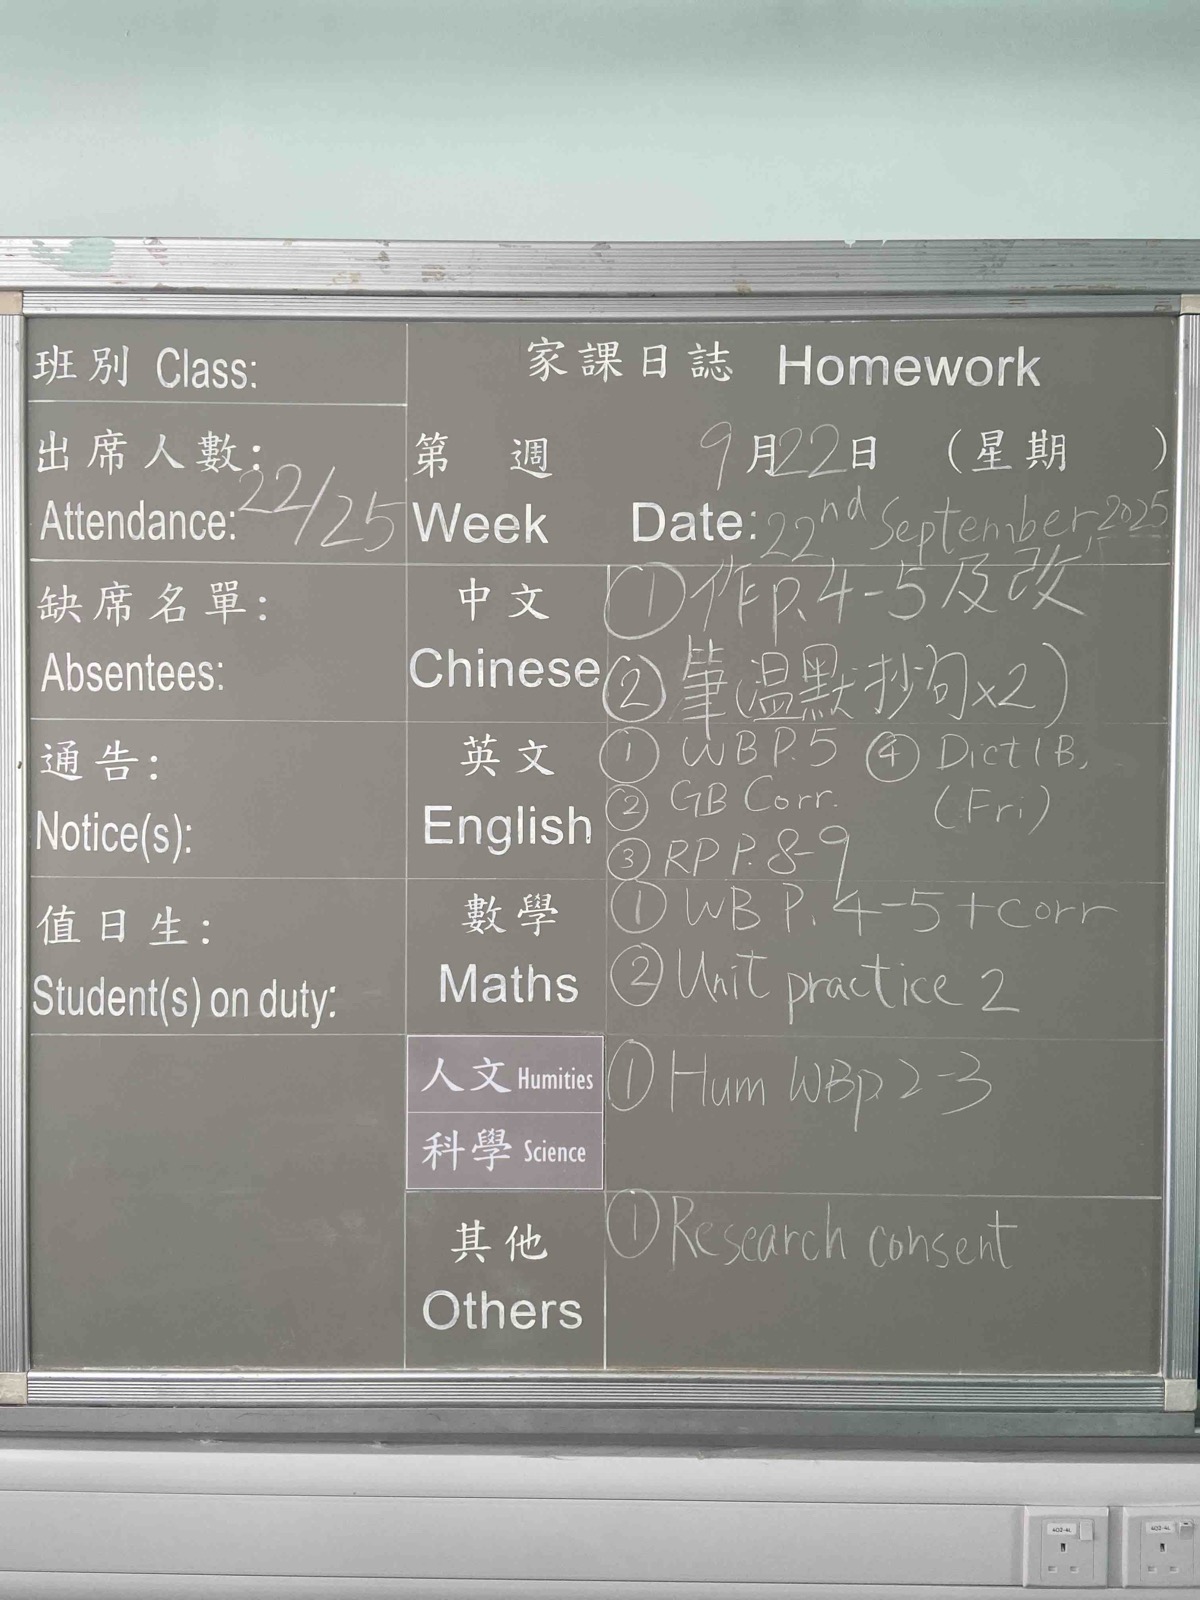 班別 Class:
家課日誌 Homework
出席人數:
Attendance: 22/25
第 週 9月22日 (星期 )
Week Date: 22nd September, 2025
缺席名單:
Absentees:
中文
Chinese
① 作p.4-5及改
② 筆(溫默抄句x2)
通告:
Notice(s):
英文
English
① WB P.5 ④ Dict 1B,
② GB Corr. (Fri)
③ RP P.8-9
值日生:
Student(s) on duty:
數學
Maths
① WB P.4-5+corr
② Unit practice 2
人文 Humities
① Hum WBp.2-3
科學 Science
其他
Others
① Research consent
402-4L
402-4L